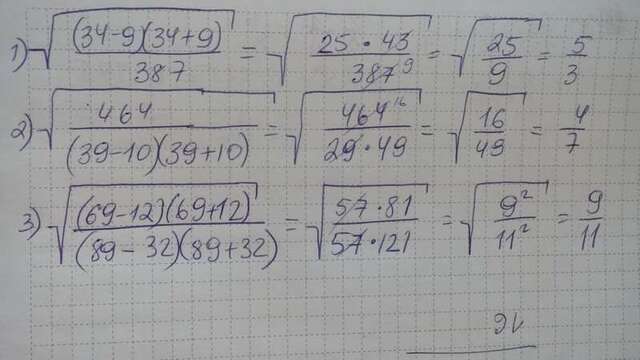 1) √((34-9)(34+9)/387) = √(25·43/387⁹) = √(25/9) = 5/3
2) √(464/(39-10)(39+10)) = √(464¹⁶/29·49) = √(16/49) = 4/7
3) √((69-12)(69+12)/(89-32)(89+32)) = √(57·81/57·121) = √(9²/11²) = 9/11